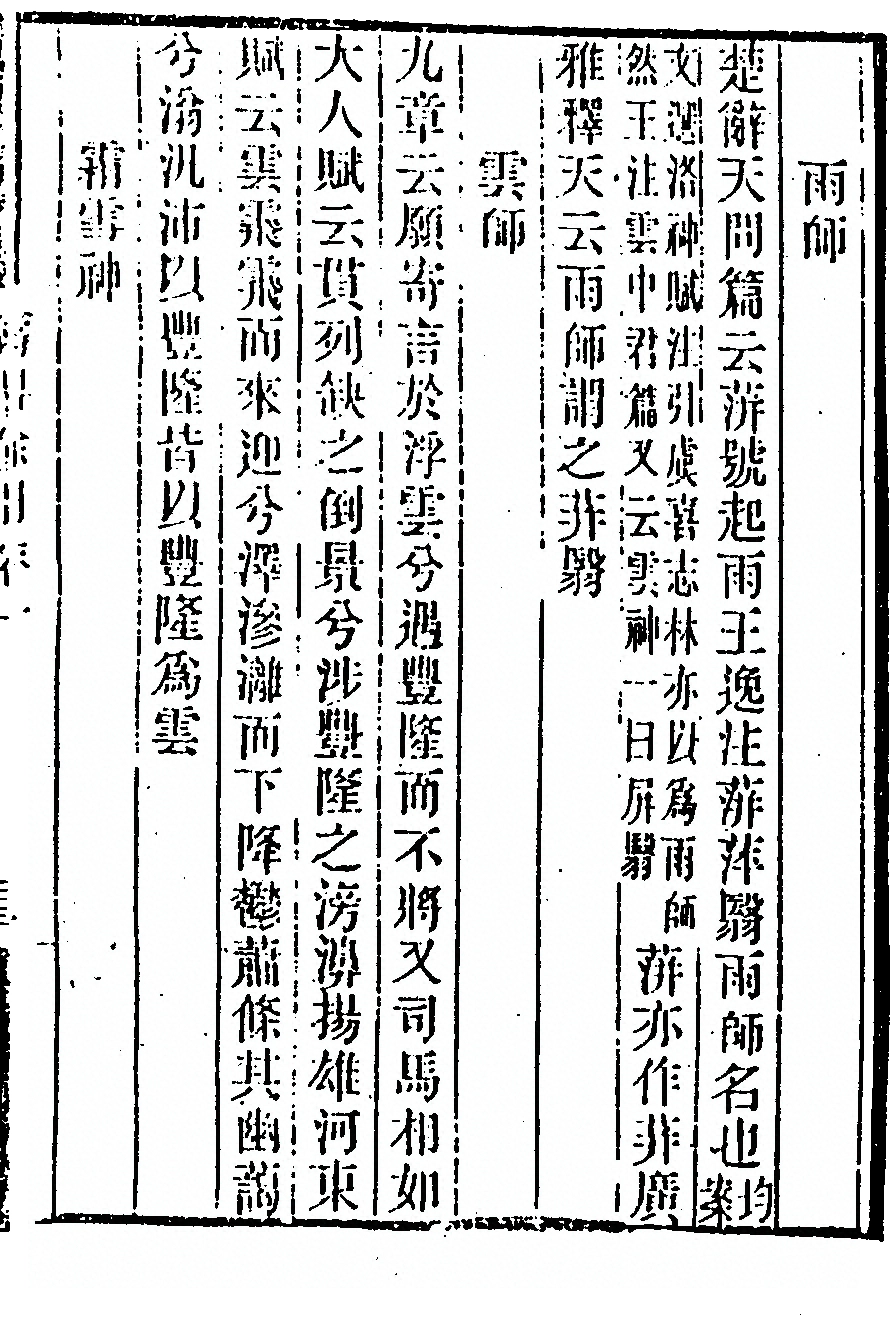 雨師
楚辭天問篇云蓱號起雨王逸注蓱蓱翳雨師名也均案
文選洛神賦注引虞喜志林亦以為雨師
然王注雲中君篇又云雲神一曰屏翳
蓱亦作蓱廣
雅釋天云雨師謂之荓翳
雲師
九章云願寄言於浮雲兮遇豐隆而不將又司馬相如
大人賦云貫列缺之倒景兮涉豐隆之滂濞揚雄河東
賦云雲霏霏而來迎兮澤滲灕而下降鬱蕭條其幽藹
兮滃汎沛以豐隆皆以豐隆為雲
霜雪神